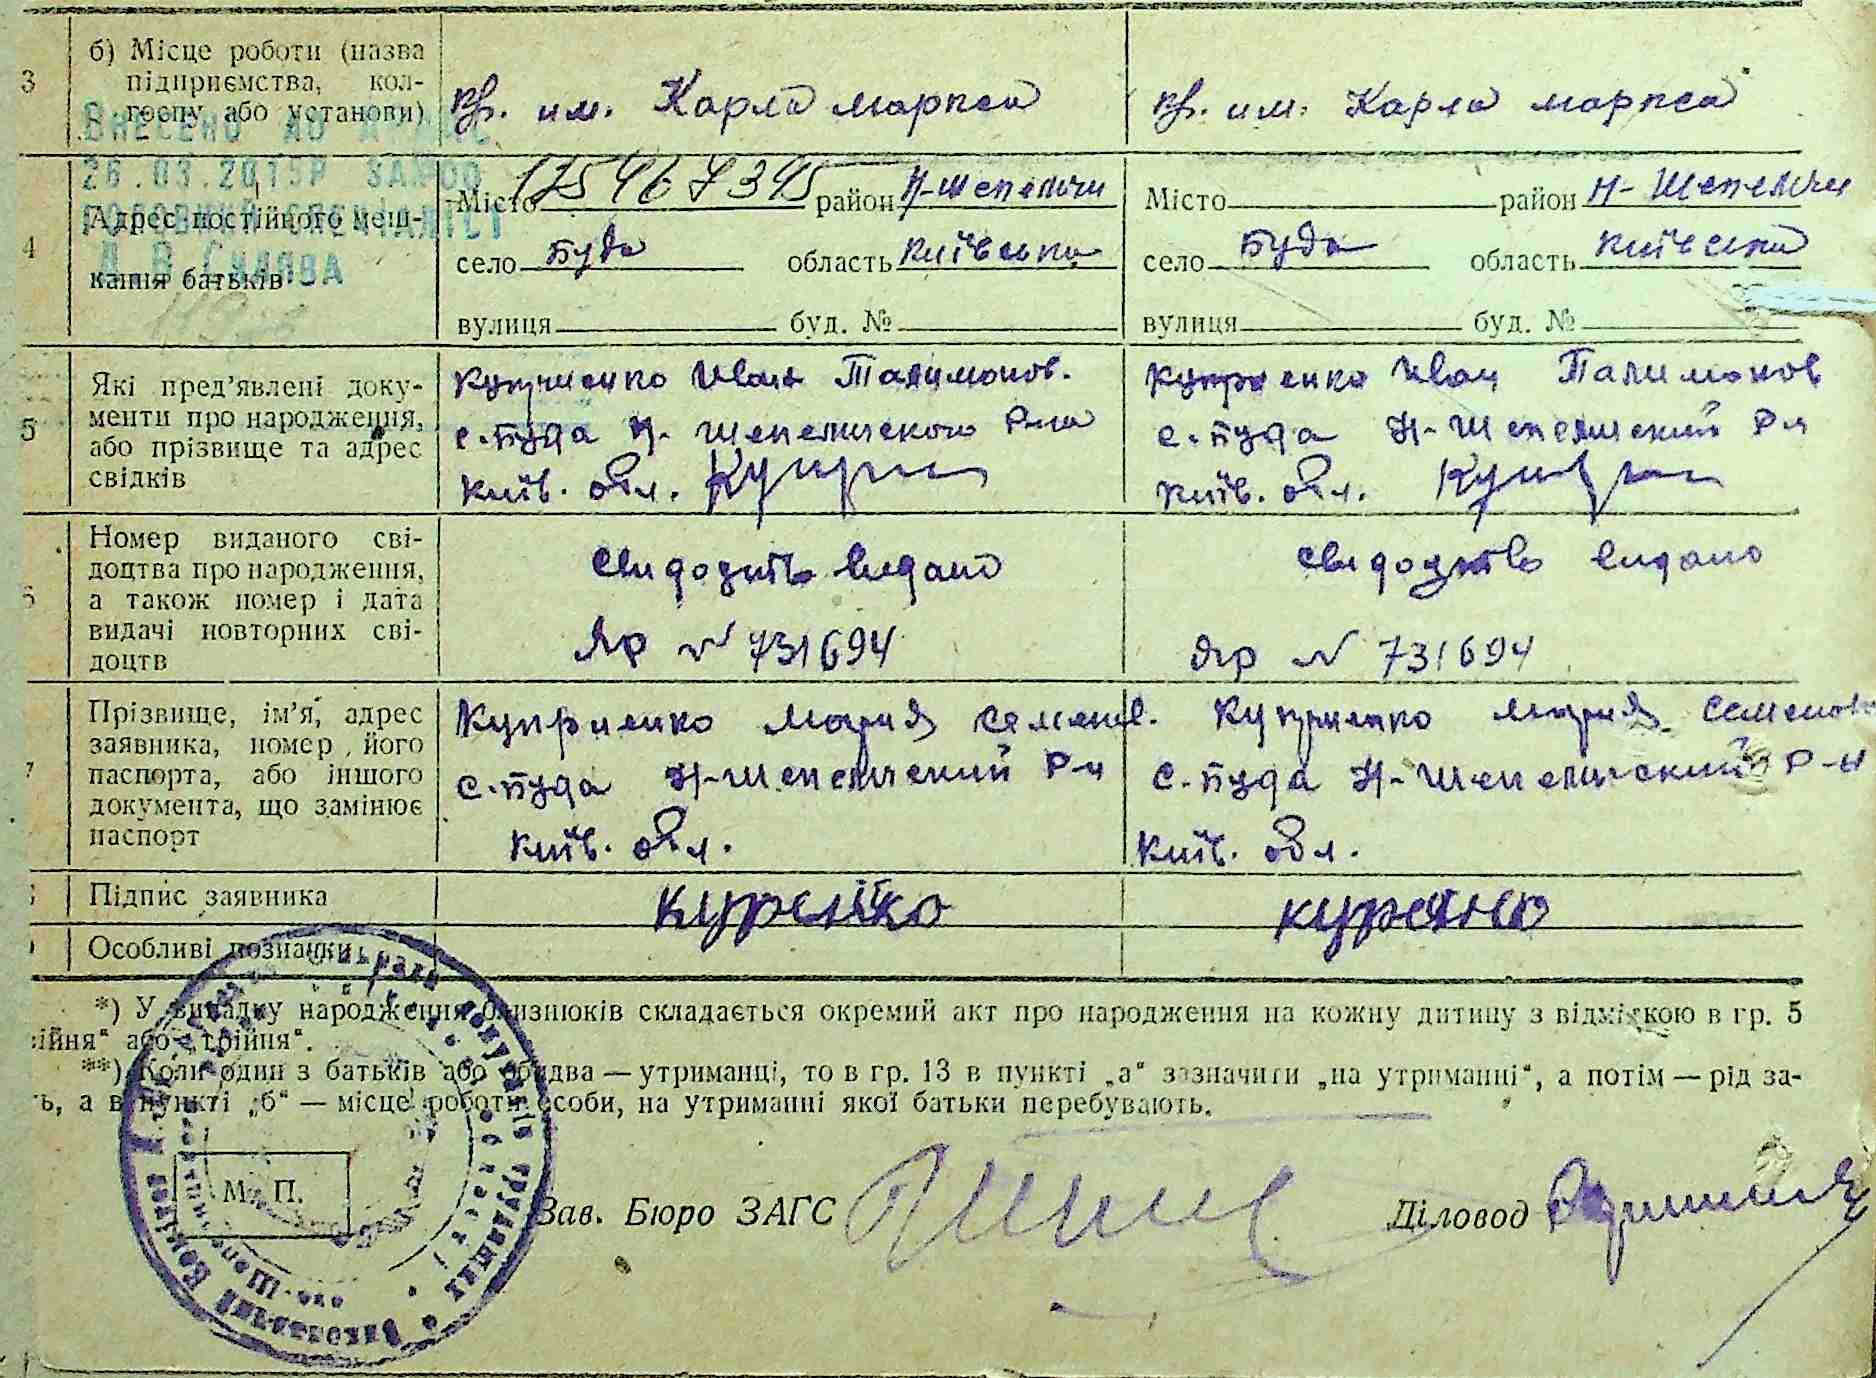 3 б) Місце роботи (назва
підприємства, кол-
госпу або установи)
кр. им. Карла маркса кр. им. Карла маркса
ВНЕСЕНО ДО
26.03.201
4 Адрес постійного меш-
кання батьків
Місто 175467395 район Н-Шепеличи Місто район Н-Шепеличи
село Буда область Київська село Буда область Київська
вулиця буд. № вулиця буд. №
5 Які пред'явлені доку-
менти про народження,
або прізвище та адрес
свідків
Куприенко Иван Палимонов. Куприенко Иван Палимонов
с. Буда Н-Шепеличского Р-на с. Буда Н-Шепеличский Р-н
Київ. обл. Київ. обл.
6 Номер виданого сві-
доцтва про народження,
а також номер і дата
видачі повторних сві-
доцтв
свидоцтво видано свидоцтво видано
ЯР N 731694 ЯР N 731694
7 Прізвище, ім'я, адрес
заявника, номер його
паспорта, або іншого
документа, що замінює
паспорт
Куприенко Мария Семенов. Куприенко Мария Семенов
с. Буда Н-Шепеличский Р-н с. Буда Н-Шепеличский Р-н
Київ. обл. Київ. обл.
Підпис заявника
Особливі познаки
*) У випадку народження близнюків складається окремий акт про народження на кожну дитину з відміткою в гр. 5
"двійня" або "трійня".
**) Коли один з батьків або обидва — утриманці, то в гр. 13 в пункті „а" зазначити „на утриманні", а потім — рід за-
ь, а в пункті „б" — місце роботи особи, на утриманні якої батьки перебувають.
М. П.
Зав. Бюро ЗАГС Діловод